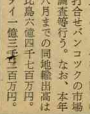 打合せバンコックの市場
調査等行う。なお、本年
八月までの同地輸出高は
比島六億四千七百万円。
イ一億三千二百万円。